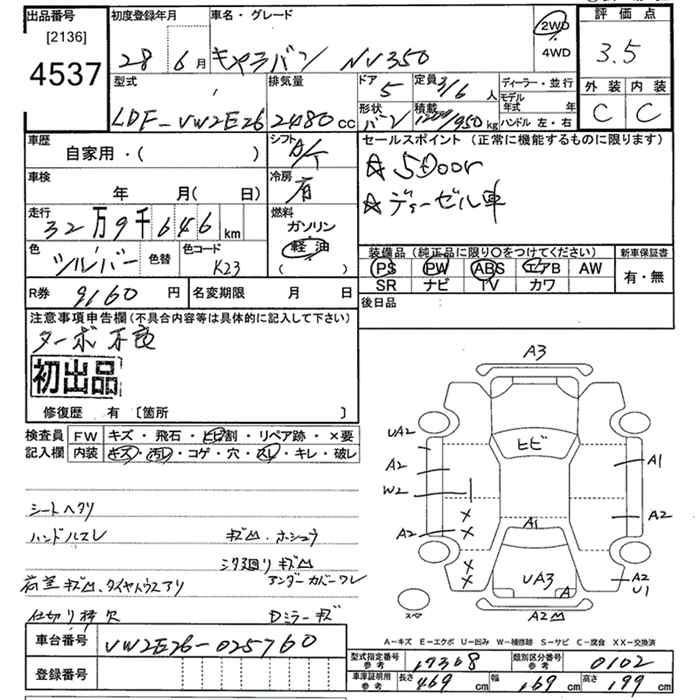 出品番号
[2136]
4537
初度登録年月
28 年 6月
車名・グレード
キャラバン NV350
2WD
4WD
評価点
3.5
外装 内装
C C
型式
LDF-VW2E26
排気量
2480cc
ドア
5
定員
3/6人
形状
バン
積載
1200/950kg
ディーラー・並行
モデル年式 年
ハンドル 左・右
車歴
自家用・( )
シフト
A/T
セールスポイント(正常に機能するものに限ります)
☆5Door
☆ディーゼル車
車検
年 月(日)
冷房
有
走行
32万9千646km
燃料
ガソリン
軽油
( )
色
シルバー
色替
色コード
K23
装備品(純正品に限り○をつけてください)
PS PW ABS エアB AW
SR ナビ TV カワ
新車保証書
有・無
R券
9160円
名変期限 月 日
後日品
注意事項申告欄(不具合内容等は具体的に記入して下さい)
ターボ不良
初出品
修復歴 有〔箇所 〕
検査員記入欄
FW キズ・飛石・ヒビ割・リペア跡・×要
内装 キズ・汚レ・コゲ・穴・スレ・キレ・破レ
シートヘタリ
ハンドルスレ
キズ凹・ホシュウ
シタ廻りキズ凹
アンダーカバーワレ
荷室キズ凹、タイヤハウスアリ
仕切り棒欠
Dミラーキズ
A3
UA2
ヒビ
A1
A2
W2
A2
A1
A2
UA3
A
A2
U1
A2凹
スペア
A-キズ E-エクボ U-凹み W-補修跡 S-サビ C-腐食 XX-交換済
車台番号
VW2E26-025760
登録番号
型式指定番号
参考
17368
類別区分番号
参考
0102
車庫証明用
参考
長さ 469cm 幅 169cm 高さ 199cm